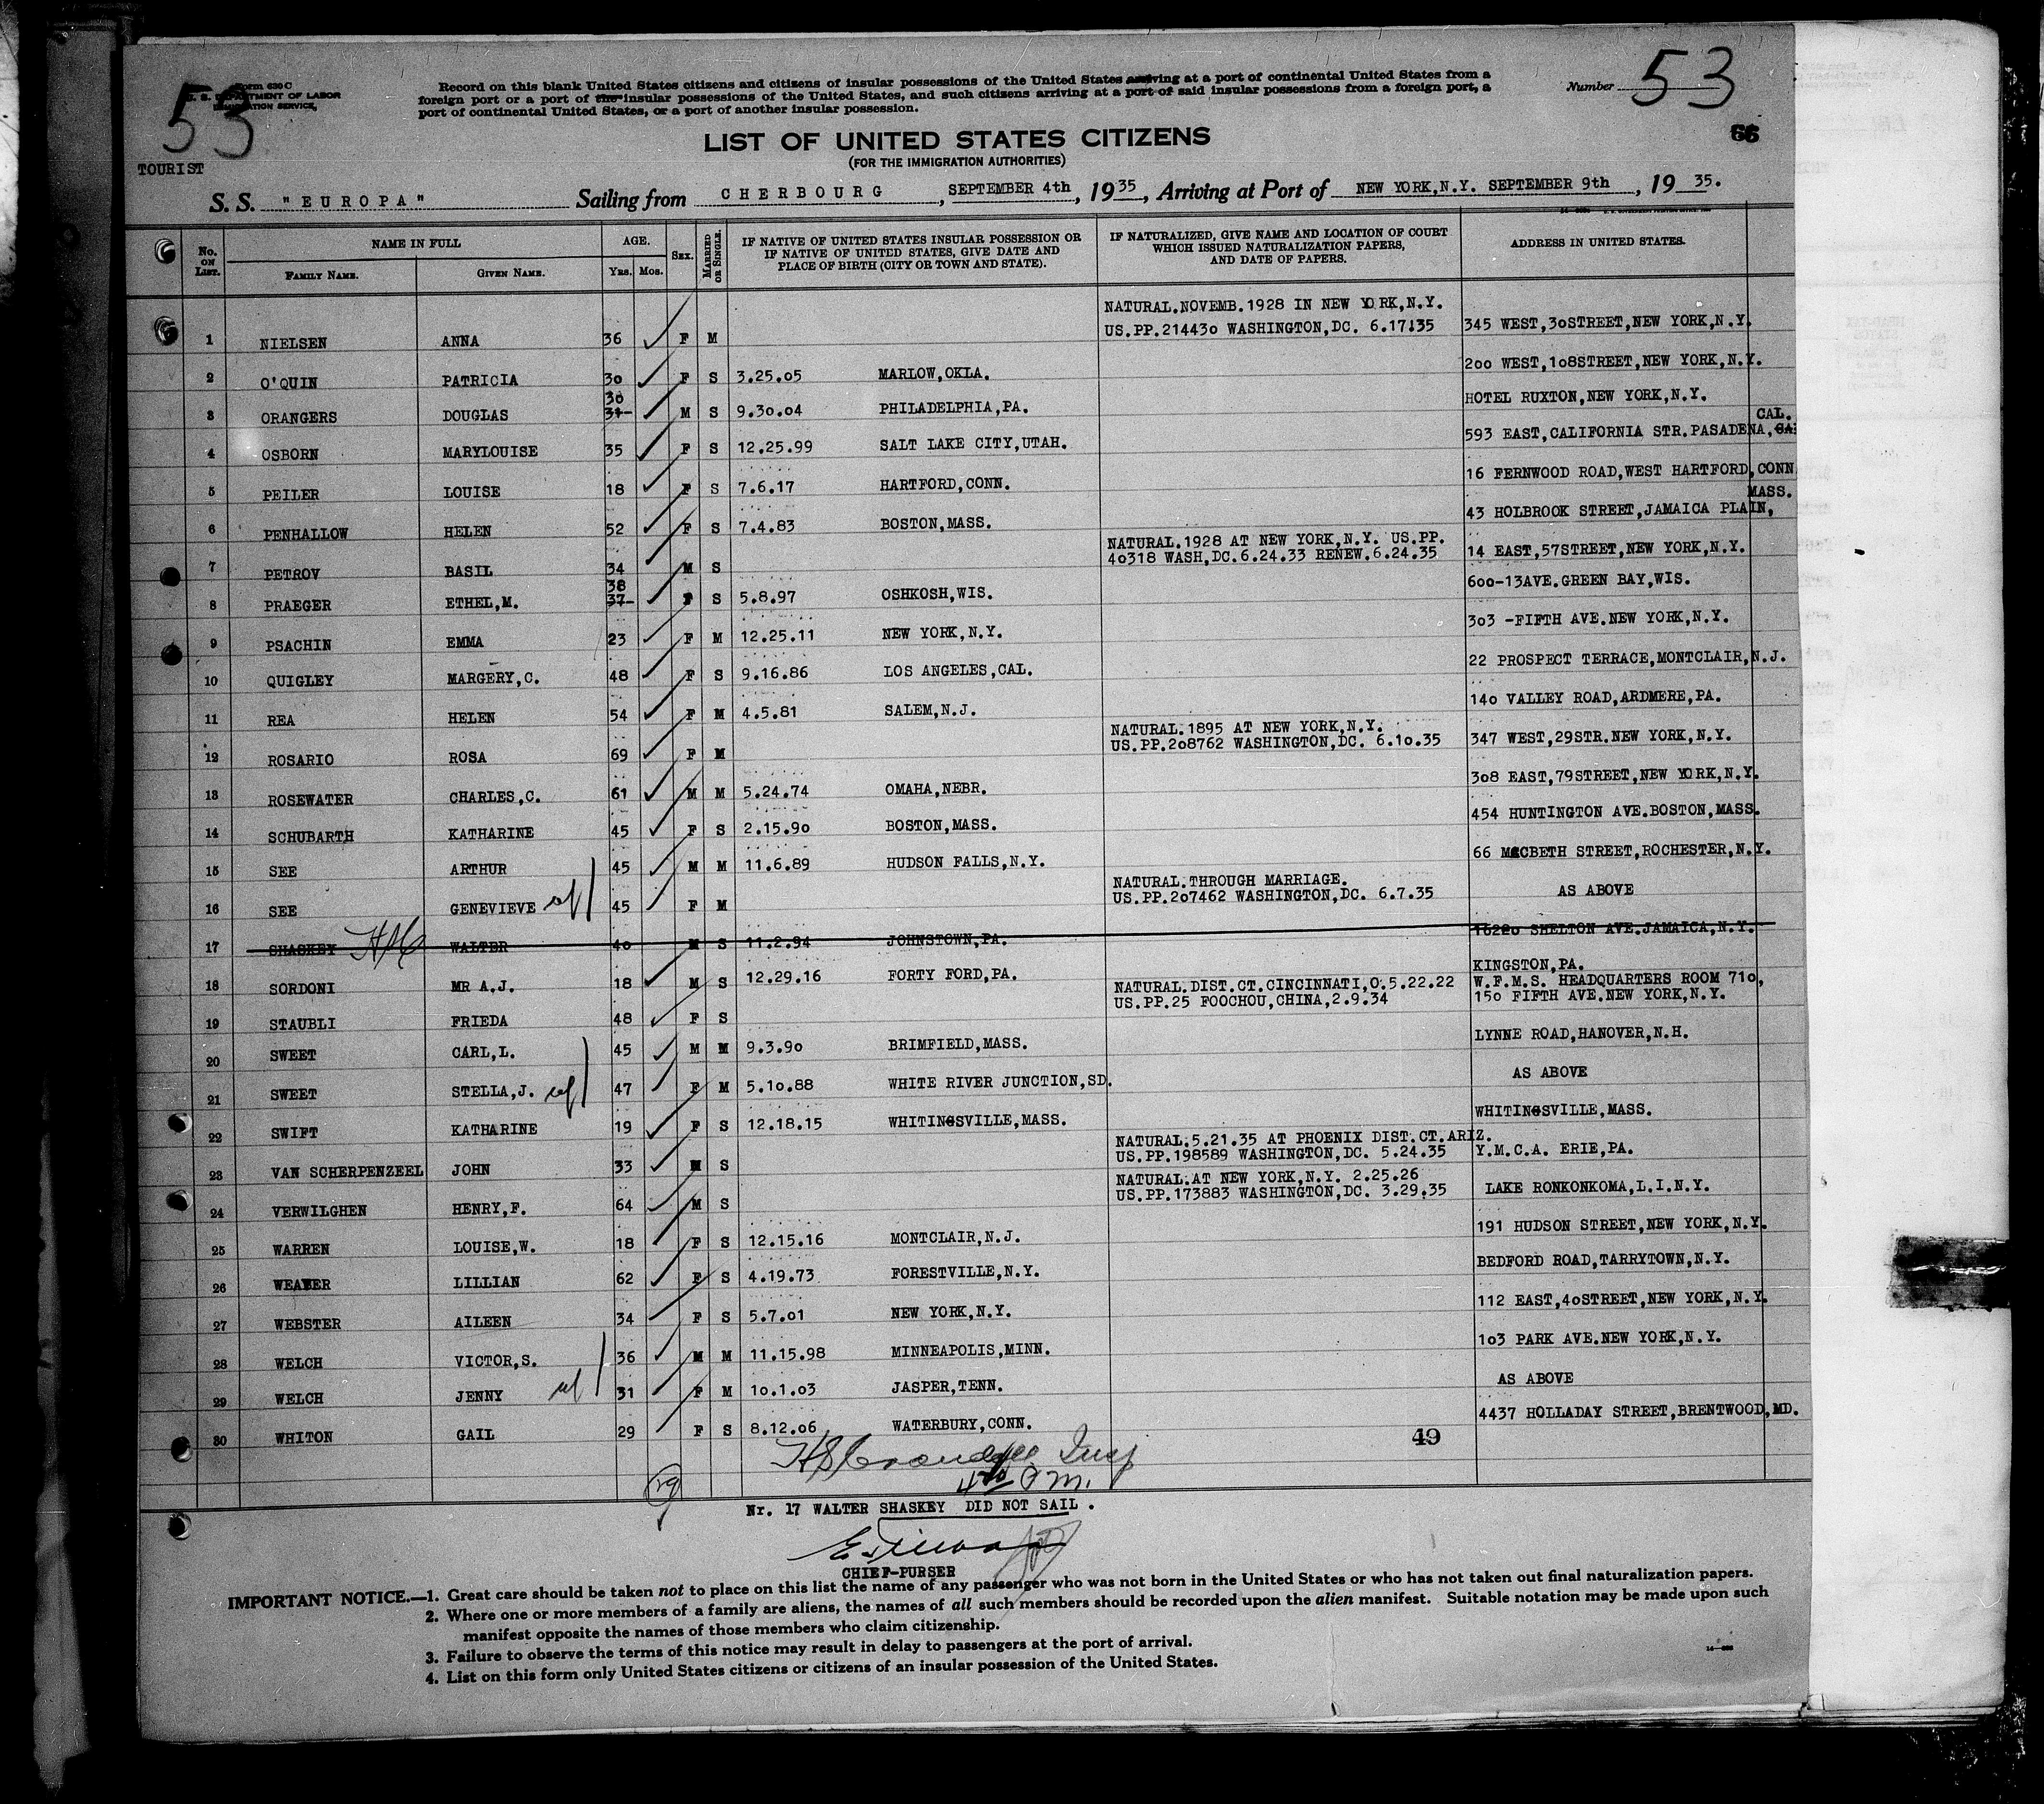 Form 630 C
U. S. DEPARTMENT OF LABOR
IMMIGRATION SERVICE,
53
TOURIST
Record on this blank United States citizens and citizens of insular possessions of the United States arriving at a port of continental United States from a
foreign port or a port of the insular possessions of the United States, and such citizens arriving at a port of said insular possessions from a foreign port, a
port of continental United States, or a port of another insular possession.
Number 53
66
LIST OF UNITED STATES CITIZENS
(FOR THE IMMIGRATION AUTHORITIES)
S. S. "EUROPA" Sailing from CHERBOURG, SEPTEMBER 4th, 1935, Arriving at Port of NEW YORK,N.Y. SEPTEMBER 9th, 1935.
No. ON LIST. NAME IN FULL FAMILY NAME. GIVEN NAME. AGE. Yrs. Mos. SEX. MARRIED OR SINGLE. IF NATIVE OF UNITED STATES INSULAR POSSESSION OR IF NATIVE OF UNITED STATES, GIVE DATE AND PLACE OF BIRTH (CITY OR TOWN AND STATE). IF NATURALIZED, GIVE NAME AND LOCATION OF COURT WHICH ISSUED NATURALIZATION PAPERS, AND DATE OF PAPERS. ADDRESS IN UNITED STATES.
1 NIELSEN ANNA 36 F M NATURAL.NOVEMB.1928 IN NEW YORK,N.Y. US.PP.214430 WASHINGTON,DC. 6.17.35 345 WEST,30STREET,NEW YORK,N.Y.
2 O'QUIN PATRICIA 30 F S 3.25.05 MARLOW,OKLA. 200 WEST,108STREET,NEW YORK,N.Y.
3 ORANGERS DOUGLAS 30 31 M S 9.30.04 PHILADELPHIA,PA. HOTEL RUXTON,NEW YORK,N.Y.
4 OSBORN MARYLOUISE 35 F S 12.25.99 SALT LAKE CITY,UTAH. 593 EAST,CALIFORNIA STR.PASADENA, CAL.
5 PEILER LOUISE 18 F S 7.6.17 HARTFORD,CONN. 16 FERNWOOD ROAD,WEST HARTFORD,CONN
6 PENHALLOW HELEN 52 F S 7.4.83 BOSTON,MASS. 43 HOLBROOK STREET,JAMAICA PLAIN, MASS.
7 PETROV BASIL 34 M S NATURAL.1928 AT NEW YORK,N.Y. US.PP. 40318 WASH,DC.6.24.33 RENEW.6.24.35 14 EAST,57STREET,NEW YORK,N.Y.
8 PRAEGER ETHEL,M. 38 37 F S 5.8.97 OSHKOSH,WIS. 600-13AVE.GREEN BAY,WIS.
9 PSACHIN EMMA 23 F M 12.25.11 NEW YORK,N.Y. 303 -FIFTH AVE.NEW YORK,N.Y.
10 QUIGLEY MARGERY,C. 48 F S 9.16.86 LOS ANGELES,CAL. 22 PROSPECT TERRACE,MONTCLAIR,N.J.
11 REA HELEN 54 F M 4.5.81 SALEM,N.J. 140 VALLEY ROAD,ARDMERE,PA.
12 ROSARIO ROSA 69 F M NATURAL.1895 AT NEW YORK,N.Y. US.PP.208762 WASHINGTON,DC. 6.10.35 347 WEST,29STR.NEW YORK,N.Y.
13 ROSEWATER CHARLES,C. 61 M M 5.24.74 OMAHA,NEBR. 308 EAST,79STREET,NEW YORK,N.Y.
14 SCHUBARTH KATHARINE 45 F S 2.15.90 BOSTON,MASS. 454 HUNTINGTON AVE.BOSTON,MASS.
15 SEE ARTHUR 45 M M 11.6.89 HUDSON FALLS,N.Y. 66 MACBETH STREET,ROCHESTER,N.Y.
16 SEE GENEVIEVE wf 45 F M NATURAL.THROUGH MARRIAGE. US.PP.207462 WASHINGTON,DC. 6.7.35 AS ABOVE
17 SHASKEY WALTER 40 M S 11.2.94 JOHNSTOWN,PA. 16220 SHELTON AVE.JAMAICA,N.Y.
18 SORDONI MR A.J. 18 M S 12.29.16 FORTY FORD,PA. KINGSTON,PA.
19 STAUBLI FRIEDA 48 F S NATURAL.DIST.CT.CINCINNATI,O.5.22.22 US.PP.25 FOOCHOU,CHINA,2.9.34 W.F.M.S. HEADQUARTERS ROOM 710, 150 FIFTH AVE.NEW YORK,N.Y.
20 SWEET CARL,L. 45 M M 9.3.90 BRIMFIELD,MASS. LYNNE ROAD,HANOVER,N.H.
21 SWEET STELLA,J. wf 47 F M 5.10.88 WHITE RIVER JUNCTION,SD. AS ABOVE
22 SWIFT KATHARINE 19 F S 12.18.15 WHITINGSVILLE,MASS. WHITINGSVILLE,MASS.
23 VAN SCHERPENZEEL JOHN 33 M S NATURAL.5.21.35 AT PHOENIX DIST.CT.ARIZ. US.PP.198589 WASHINGTON,DC. 5.24.35 Y.M.C.A. ERIE,PA.
24 VERWILGHEN HENRY,F. 64 M S NATURAL.AT NEW YORK,N.Y. 2.25.26 US.PP.173883 WASHINGTON,DC. 3.29.35 LAKE RONKONKOMA,L.I.N.Y.
25 WARREN LOUISE,W. 18 F S 12.15.16 MONTCLAIR,N.J. 191 HUDSON STREET,NEW YORK,N.Y.
26 WEAVER LILLIAN 62 F S 4.19.73 FORESTVILLE,N.Y. BEDFORD ROAD,TARRYTOWN,N.Y.
27 WEBSTER AILEEN 34 F S 5.7.01 NEW YORK,N.Y. 112 EAST,40STREET,NEW YORK,N.Y.
28 WELCH VICTOR,S. 36 M M 11.15.98 MINNEAPOLIS,MINN. 103 PARK AVE.NEW YORK,N.Y.
29 WELCH JENNY wf 31 F M 10.1.03 JASPER,TENN. AS ABOVE
30 WHITON GAIL 29 F S 8.12.06 WATERBURY,CONN. 4437 HOLLADAY STREET,BRENTWOOD,MD.
49
29
Nr. 17 WALTER SHASKEY DID NOT SAIL.
CHIEF-PURSER
IMPORTANT NOTICE.—1. Great care should be taken not to place on this list the name of any passenger who was not born in the United States or who has not taken out final naturalization papers.
2. Where one or more members of a family are aliens, the names of all such members should be recorded upon the alien manifest. Suitable notation may be made upon such
manifest opposite the names of those members who claim citizenship.
3. Failure to observe the terms of this notice may result in delay to passengers at the port of arrival.
4. List on this form only United States citizens or citizens of an insular possession of the United States.